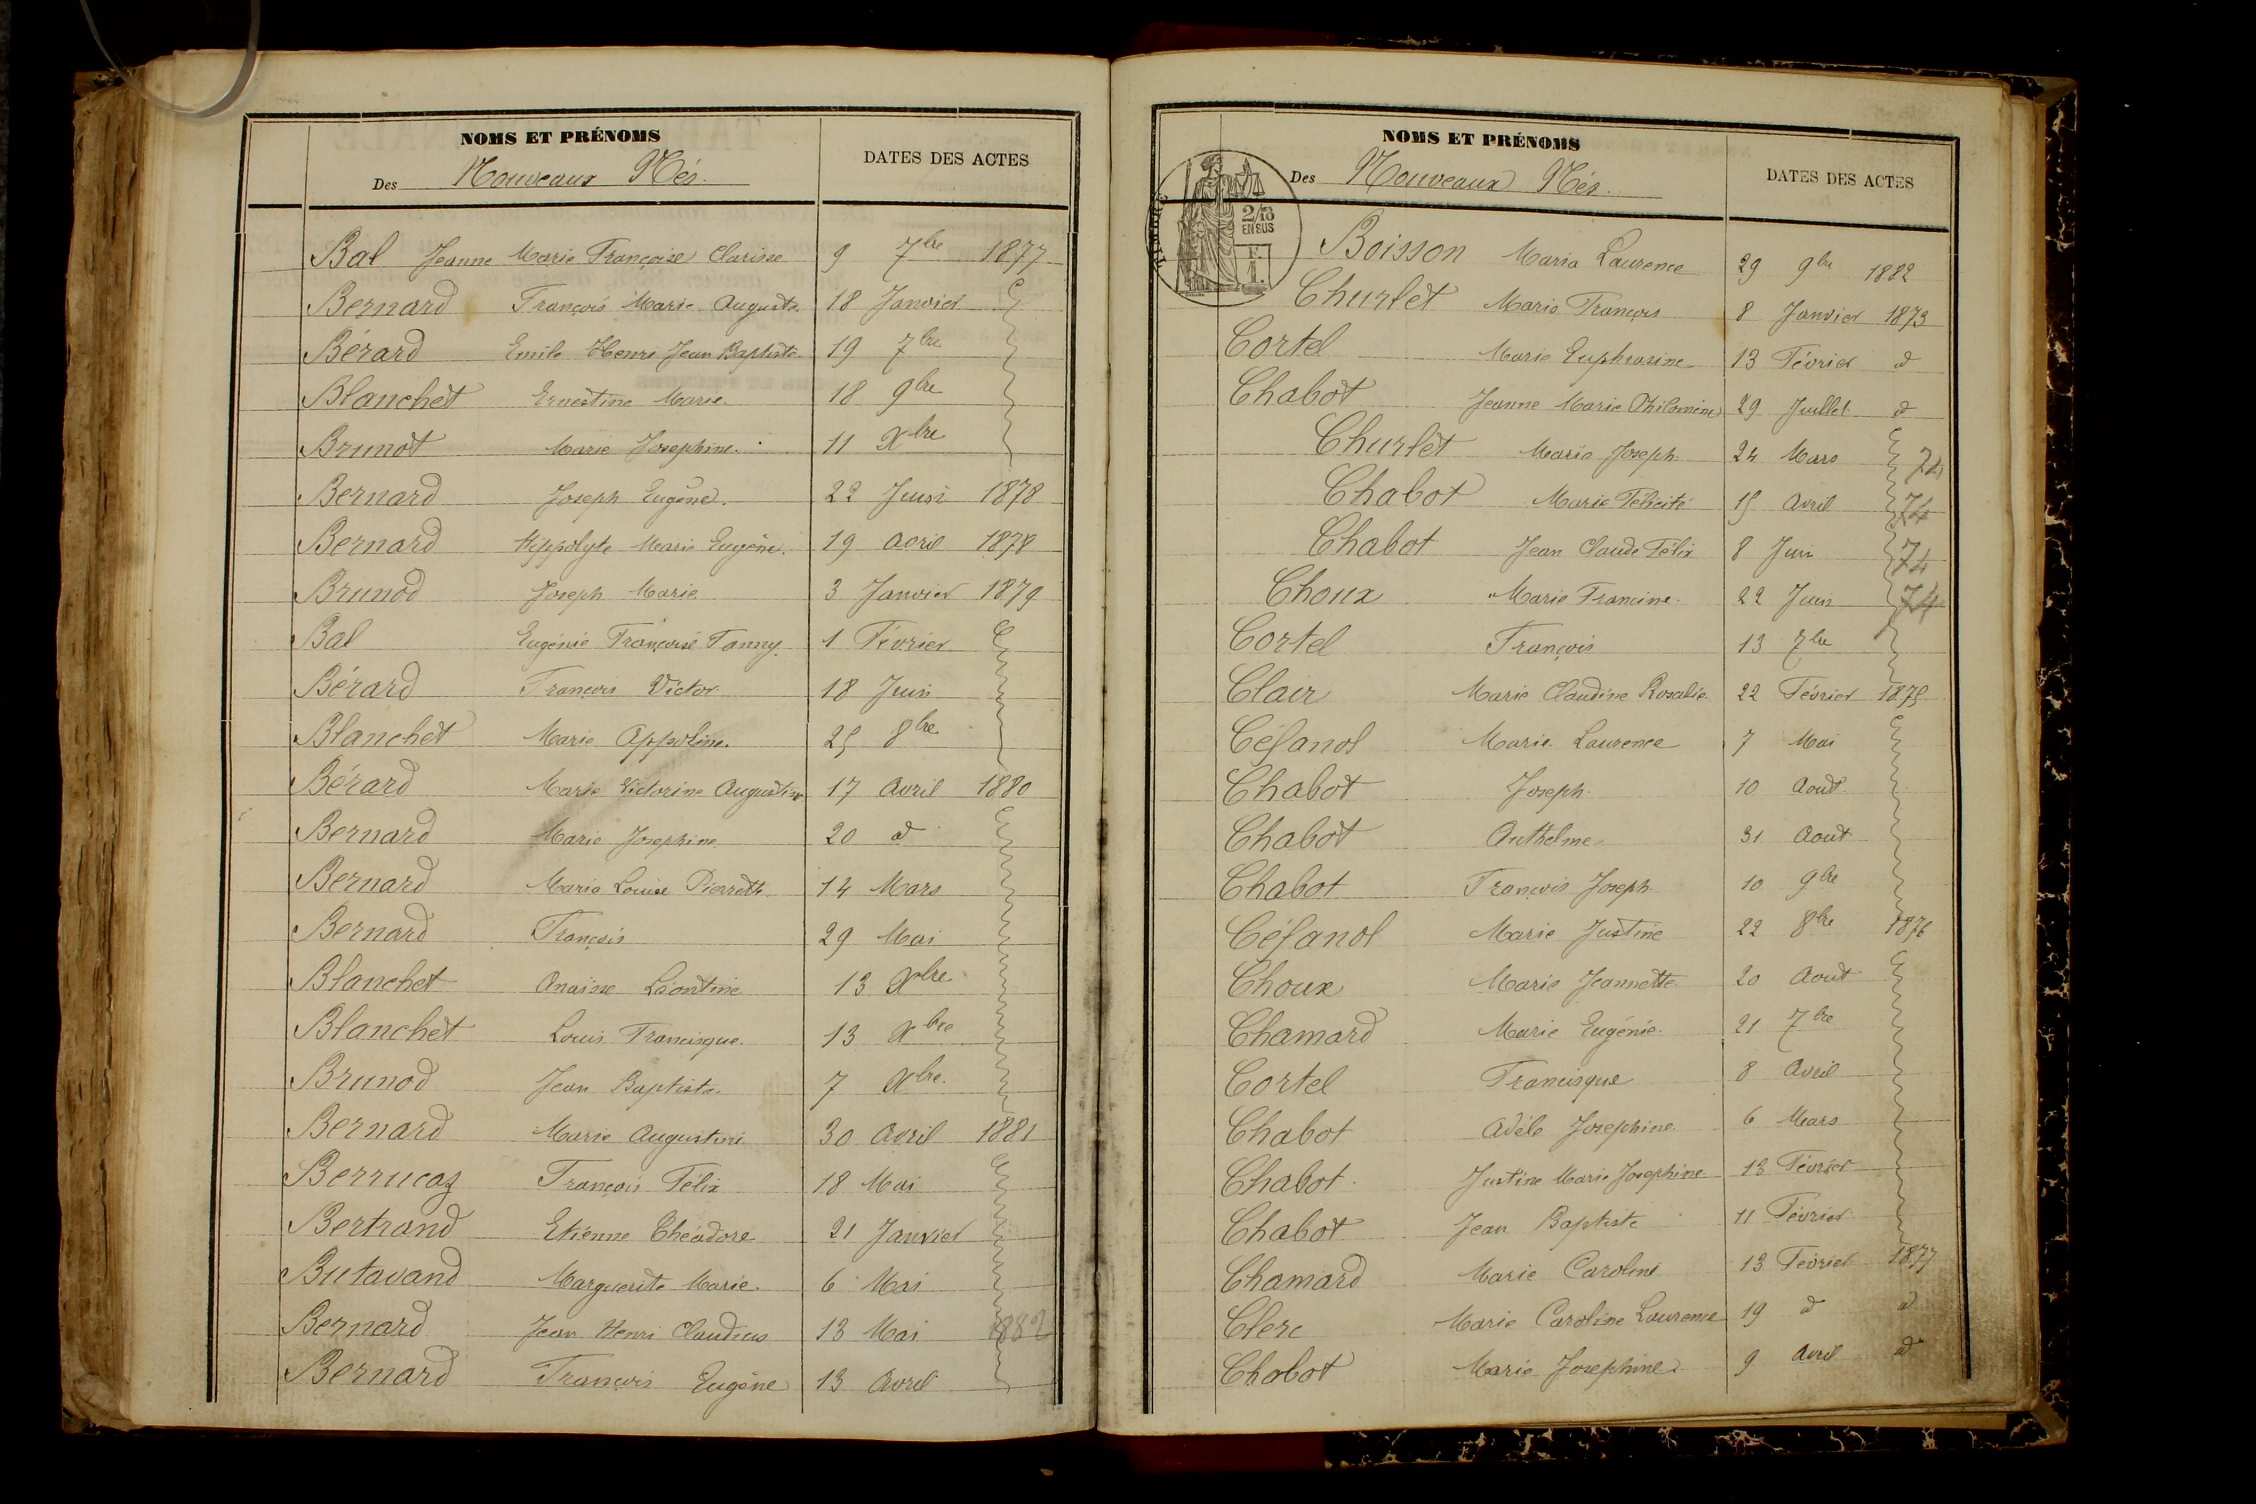 NOMS ET PRÉNOMS
Des Nouveaux Nés.
DATES DES ACTES
Bal Jeanne Marie Françoise Clarisse 9 7bre 1877
Bernard François Marie Auguste 18 Janvier
Bérard Emile Henri Jean Baptiste 19 7bre
Blanchet Ernestine Marie 18 9bre
Brunot Marie Josephine. 11 Xbre
Bernard Joseph Eugène. 22 Juin 1878
Bernard Hippolyte Marie Eugène. 19 Avril 1878
Brunod Joseph Marie 3 Janvier 1879
Bal Eugénie Françoise Fanny 1 Février
Bérard François Victor 18 Juin
Blanchet Marie Appoline. 25 8bre
Bérard Marie Victorine Augustine 17 Avril 1880
Bernard Marie Josephine 20 d
Bernard Maria Louise Pierrette 14 Mars
Bernard François 29 Mai
Blanchet Anaïse Léontine 13 Xbre
Blanchet Louis Francisque. 13 Xbre
Brunod Jean Baptiste. 7 Xbre.
Bernard Marie Augustine 30 Avril 1881
Berrucaz François Félix 18 Mai
Bertrand Etienne Théodore 21 Janvier
Butavand Marguerite Marie. 6 Mai
Bernard Jean Henri Claudius 13 Mai 1882
Bernard François Eugène 13 Avril
NOMS ET PRÉNOMS
Des Nouveaux Nés.
DATES DES ACTES
TIMBRE
2/10
EN SUS
Boisson Maria Laurence 29 9bre 1882
Churlet Marie François 8 Janvier 1873
Cortel Marie Euphrasine 13 Février d
Chabot Jeanne Marie Philomène 29 Juillet d
Churlet Marie Joseph 24 Mars 74
Chabot Marie Félicité 15 Avril 74
Chabot Jean Claude Félix 8 Juin 74
Choux Marie Francine. 22 Juin 74
Cortel François 13 7bre
Clair Marie Claudine Rosalie 22 Février 1875
Céfanol Marie Laurence 7 Mai
Chabot Joseph 10 Août
Chabot Anthelme 31 Août
Chabot François Joseph 10 9bre
Céfanol Marie Justine 22 8bre 1876
Choux Marie Jeannette 20 Aout
Chamard Marie Eugénie. 21 7bre
Cortel Francisque 8 Avril
Chabot Adèle Josephine 6 Mars
Chabot Justine Marie Josephine 13 Février
Chabot Jean Baptiste 11 Février
Chamard Marie Caroline 13 Février 1877
Clerc Marie Caroline Laurence 19 d d
Chabot Marie Josephine 9 Avril d